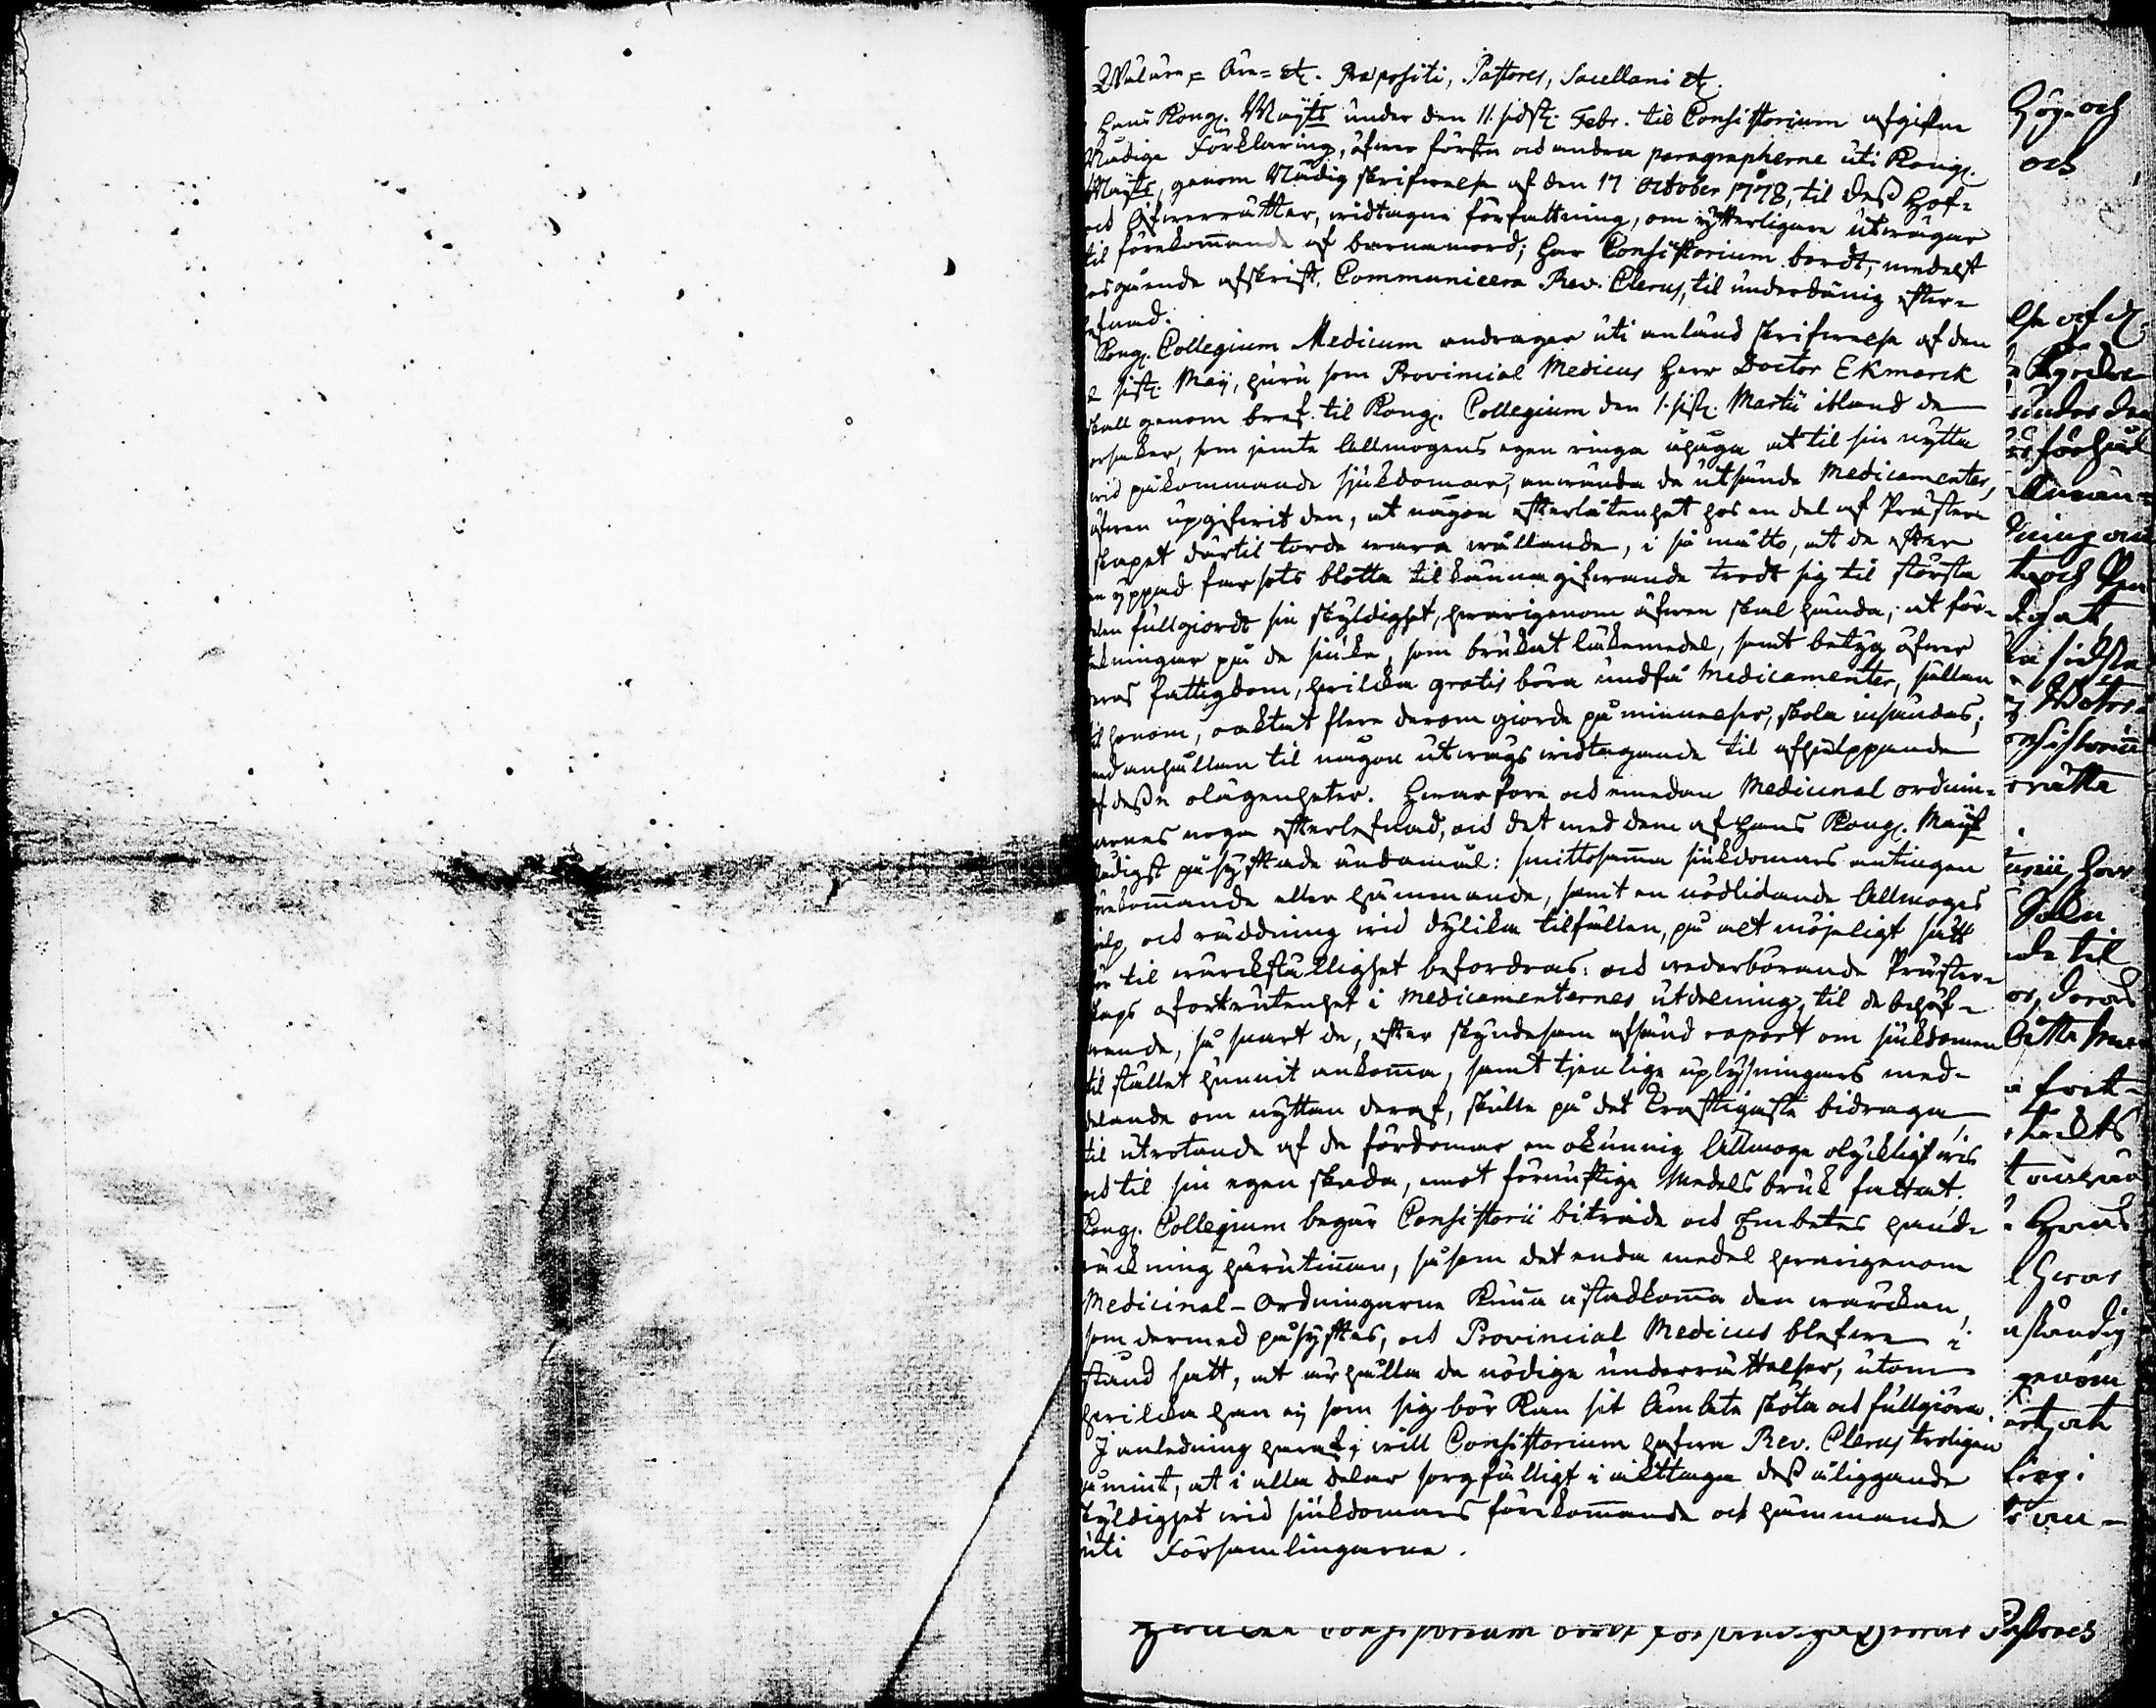 Wälärw= Äre= etc. Præpositi, Pastores, Sacellani etc.
Hans Kongl. Maÿts under den 11. sidstl. Febr. til Consistorium afgifne
Nådige Förklaring, öfwer första och andra paragrapherne uti Kongl.
Maÿts, genom Nådig skrifwelse af den 17 October 1778, til deß Hof=
och Öfwerrätter, widtagne författning, om ytterligare utwägar
til förekom̄ande af barnamord; har Consistorium bordt, medelst
hosgående afskrift, Communicera Rev. Clerus, til underdånig efter=
lefnad.
Kongl. Collegium Medicum andrager uti anländ skrifwelse af den
sistl. Maÿ, huru som Provincial Medicus Herr Doctor Ekmarck
skall genom bref til Kongl. Collegium den 1. sistl. Martii ibland de
orsaker, som jemte Allmogens egen ringa åhåga at til sin nytta
wid påkommande sjukdomar, anwända de utsände Medicamenter,
äfwen upgifwit den, at någon efterlåtenhet hos en del af Präster=
skapet därtil torde wara wållande, i så måtto, at de efter
en yppad farsots blotta tilkänna gifwande trodt sig til största
delen fullgiordt sin skyldighet, hwarigenom äfwen skal hända, at för=
tekningar på de siuka, som brukat läkemedel, samt betyg öfwer
deras fattigdom, hwilka gratis böra undfå Medicamenter, sällan
til honom, oaktat flere derom giorde påminnelser, skola insändas;
med anhållan til någon utwägs widtagande til afhjelppande
af deße olägenheter. Hwarföre och emedan Medicinal ordnin=
garnes noga efterlefnad, och det med dem af Hans Kongl. Maÿt
Nådigst påsyftade ändamål: smittosam̄a siukdomars antingen
förekom̄ande eller hämmande, samt en nödlidande Allmoges
hjelp och räddning wid dylika tilfällen, på alt möjeligt sätt
bör til wärckställighet befordras: och wederbörande Präster=
skaps ofortrutenhet i Medicamenternes utdelning, til de behöf=
wande, så snart de, efter skyndesam afsänd raport om siukdomen
til stället hunnit ankom̄a, samt tjenlige uplysningars med=
delande om nyttan deraf, skulle på det kraftigaste bidraga
til utrotande af de fördomar en okunnig Allmoge olyckligt wis
och til sin egen skada, emot förnuftige Medels bruk fattat.
Kongl. Collegium begär Consistorii biträde och Embetes hand=
räckning härutin̄an, såsom det enda medel hwarigenom
Medicinal-Ordningarne kun̄a åstadkom̄a den wärckan,
som dermed påsyftes, och Provincial Medicus blefwe i
stånd satt, at ärhålla de nödige underrättelser, utom
hwilka han ej som sig bör kan sit Ämbete sköta och fullgiöra.
I anledning häraf, will Consistorium hafwa Rev. Clerus troligen
påmint, at i alla delar sorgfälligt i akttaga deß åliggande
skyldighet wid siukdomars förekom̄ande och hämmande
uti Församlingarne.
Pastores
Höge och
och
under den
ning om
sidsta
rätta
Herr
de til
deras
Hwad
genom